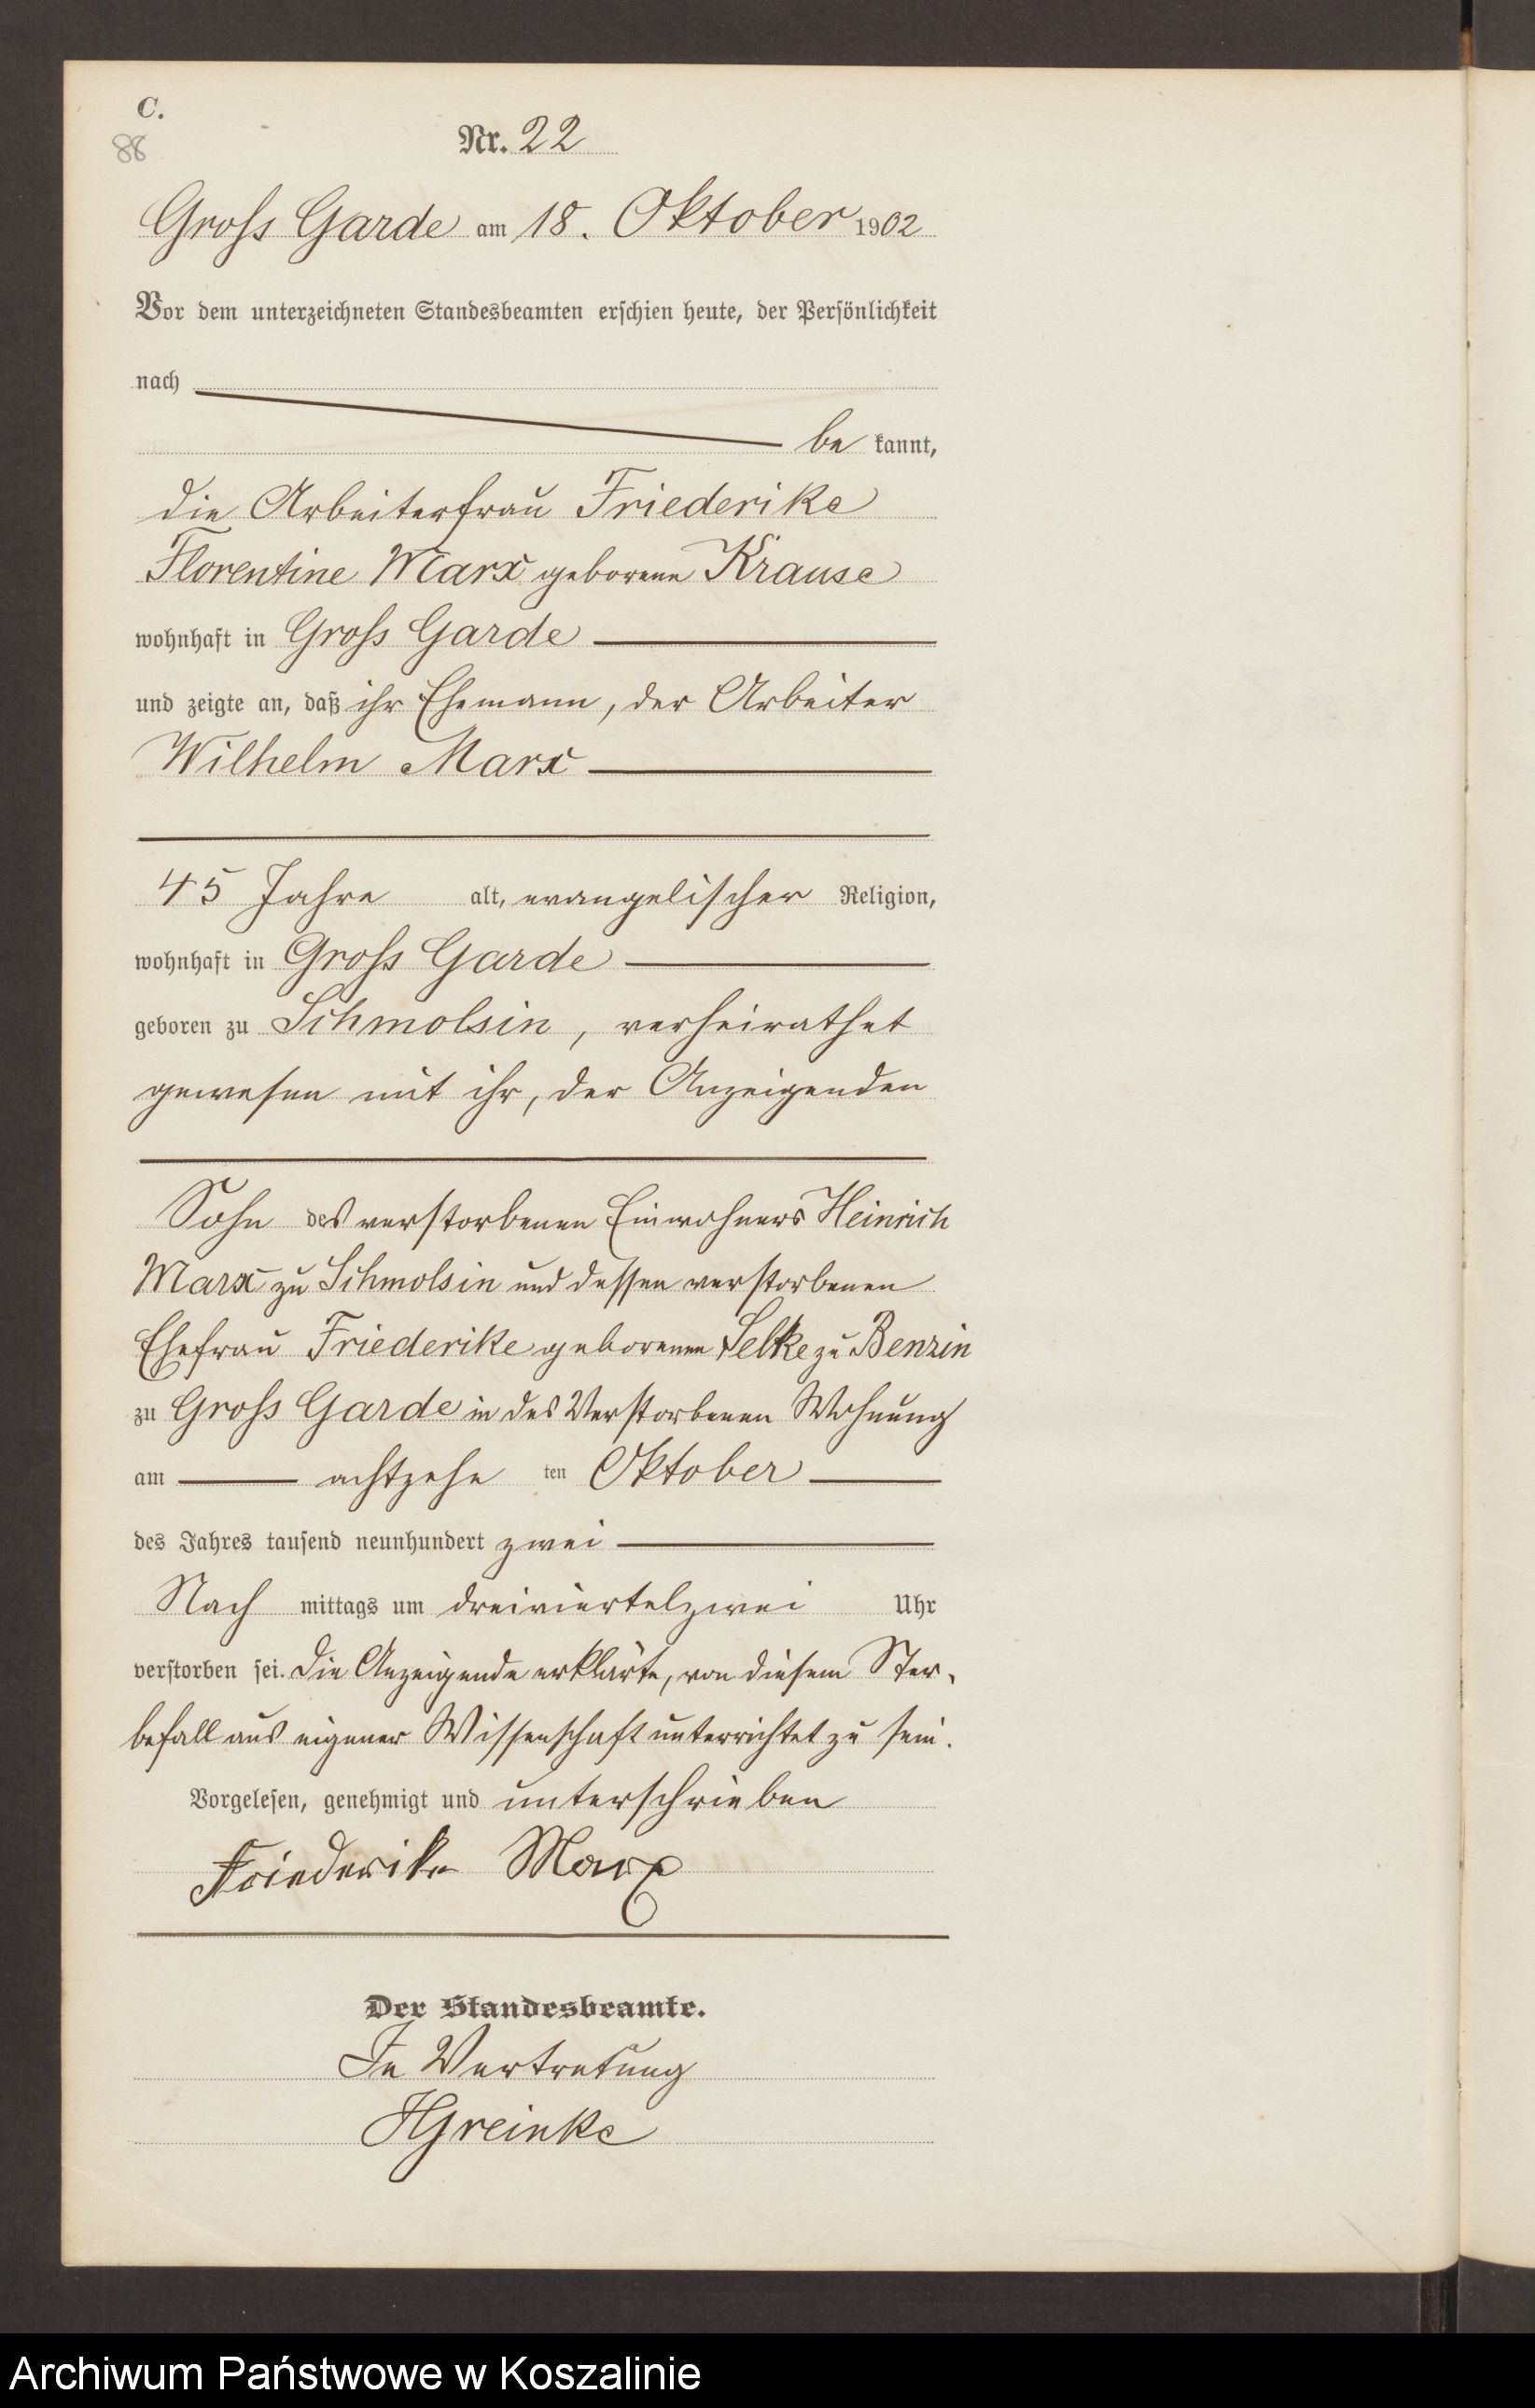 C.
88
Nr. 22
Gross Garde am 18. Oktober 1902
Vor dem unterzeichneten Standesbeamten erschien heute, der Persönlichkeit
nach
be kannt,
die Arbeiterfrau Friederike
Florentine Marx geborene Krause
wohnhaft in Gross Garde
und zeigte an, daß ihr Ehemann, der Arbeiter
Wilhelm Marx
45 Jahre alt, evangelischer Religion,
wohnhaft in Gross Garde
geboren zu Schmolsin, verheirathet
gewesen mit ihr, der Anzeigenden
Sohn des verstorbenen Einwohners Heinrich
Marx zu Schmolsin und dessen verstorbenen
Ehefrau Friederike geborenen Selke zu Benzin
zu Gross Garde in des Verstorbenen Wohnung
am achtzehn ten Oktober
des Jahres tausend neunhundert zwei
Nach mittags um dreiviertelzwei Uhr
verstorben sei. Die Anzeigende erklärte, von diesem Ster-
befall aus eigener Wissenschaft unterrichtet zu sein.
Vorgelesen, genehmigt und unterschrieben
Friederike Marx
Der Standesbeamte.
In Vertretung
HGreinke
Archiwum Państwowe w Koszalinie